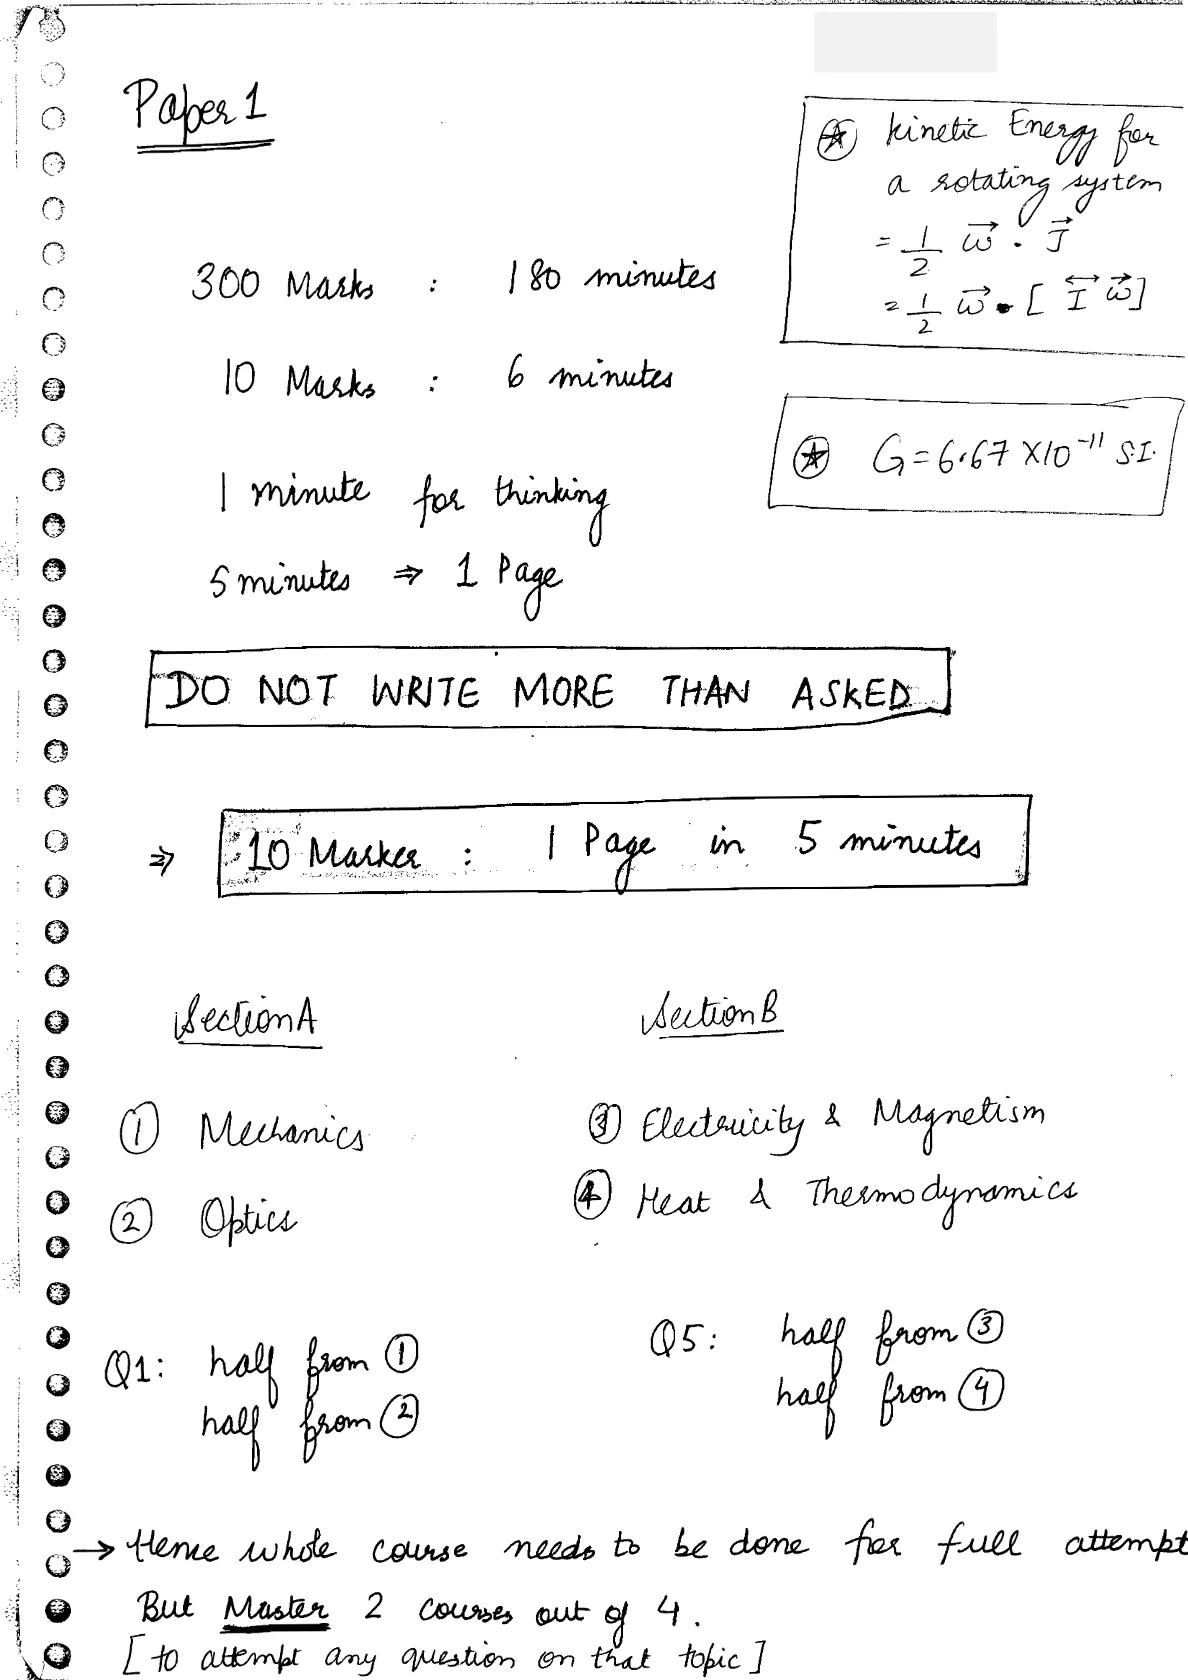 Paper 1
⍟ kinetic Energy for
a rotating system
= 1/2 ω⃗ . J⃗
= 1/2 ω⃗ • [ I⃡ ω⃗ ]
300 Marks : 180 minutes
10 Marks : 6 minutes
⍟ G = 6.67 X 10⁻¹¹ S.I.
1 minute for thinking
5 minutes ⇒ 1 Page
DO NOT WRITE MORE THAN ASKED
⇒ 10 Marker : 1 Page in 5 minutes
Section A
① Mechanics
② Optics
Q1: half from ①
half from ②
Section B
③ Electricity & Magnetism
④ Heat & Thermodynamics
Q5: half from ③
half from ④
→ Hence whole course needs to be done for full attempt
But Master 2 courses out of 4.
[ to attempt any question on that topic ]